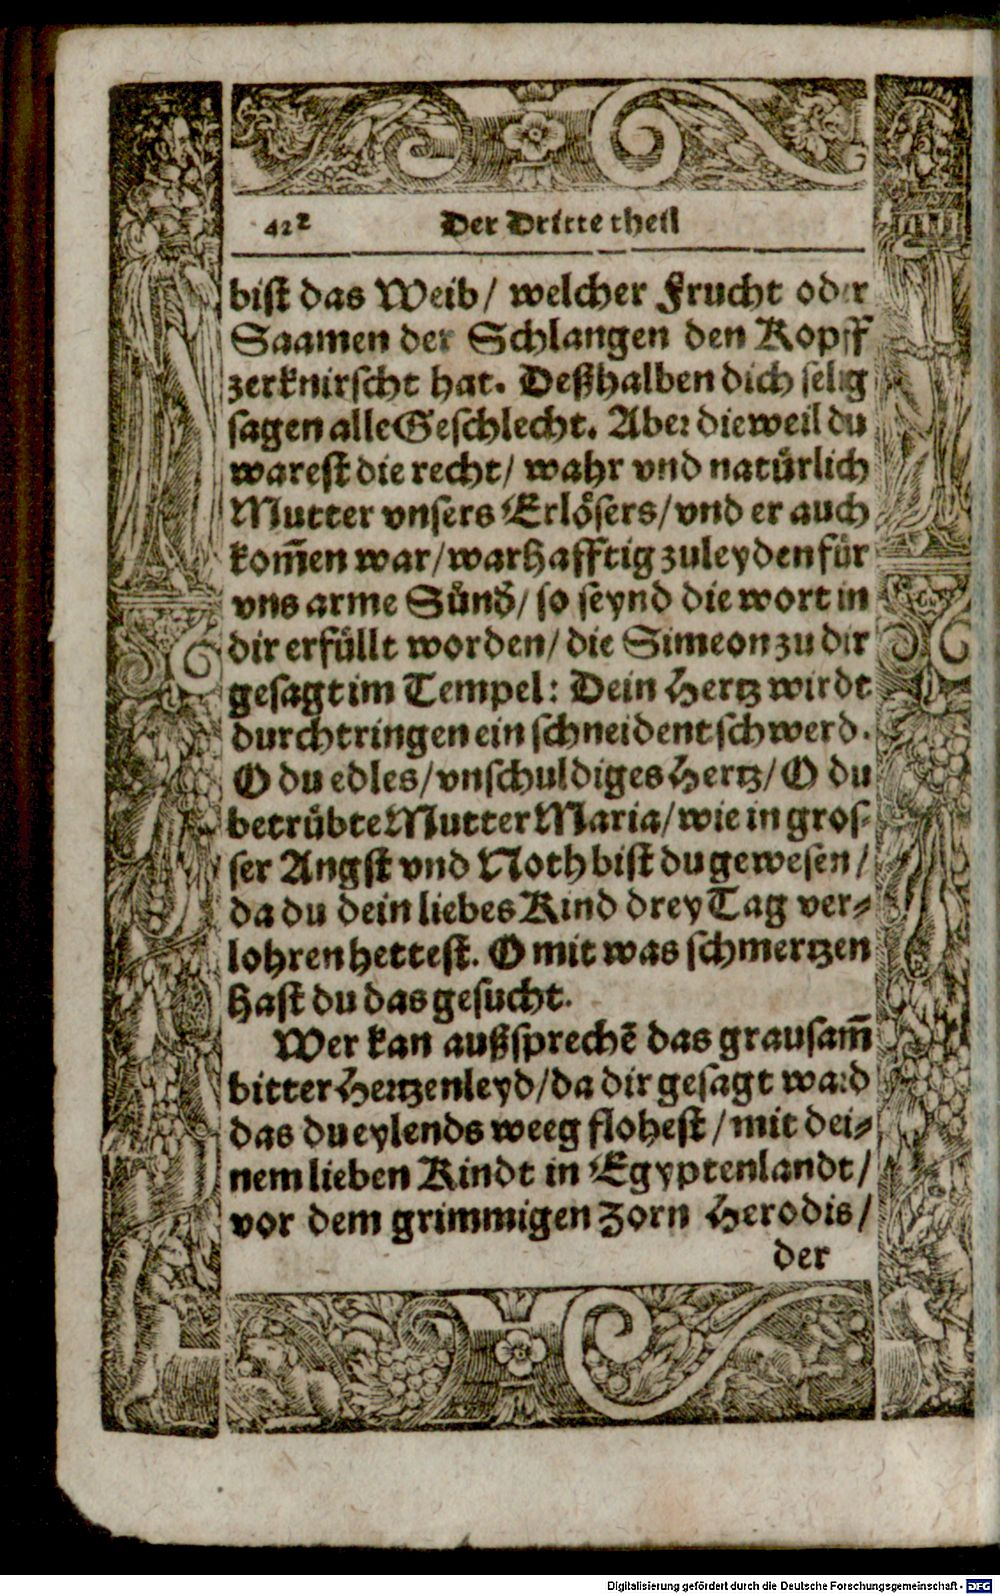 422 Der Dritte theil
bist das Weib/ welcher Frucht oder
Saamen der Schlangen den Kopff
zerknirscht hat. Deßhalben dich selig
sagen alle Geschlecht. Aber dieweil du
warest die recht/ wahr vnd natürlich
Mutter vnsers Erlösers/ vnd er auch
kom̄en war/ warhafftig zuleyden für
vns arme Sünd/ so seynd die wort in
dir erfüllt worden/ die Simeon zu dir
gesagt im Tempel: Dein Hertz wirdt
durchtringen ein schneident schwerd.
O du edles/ vnschuldiges Hertz/ O du
betrübte Mutter Maria/ wie in gros-
ser Angst vnd Noth bist du gewesen/
da du dein liebes Kind drey Tag ver-
lohren hettest. O mit was schmertzen
hast du das gesucht.
Wer kan außsprechē das grausam̄
bitter Hertzenleyd/ da dir gesagt ward
das du eylends weeg flohest/ mit dei-
nem lieben Kindt in Egyptenlandt/
vor dem grimmigen Zorn Herodis/
der
Digitalisierung gefördert durch die Deutsche Forschungsgemeinschaft - DFG